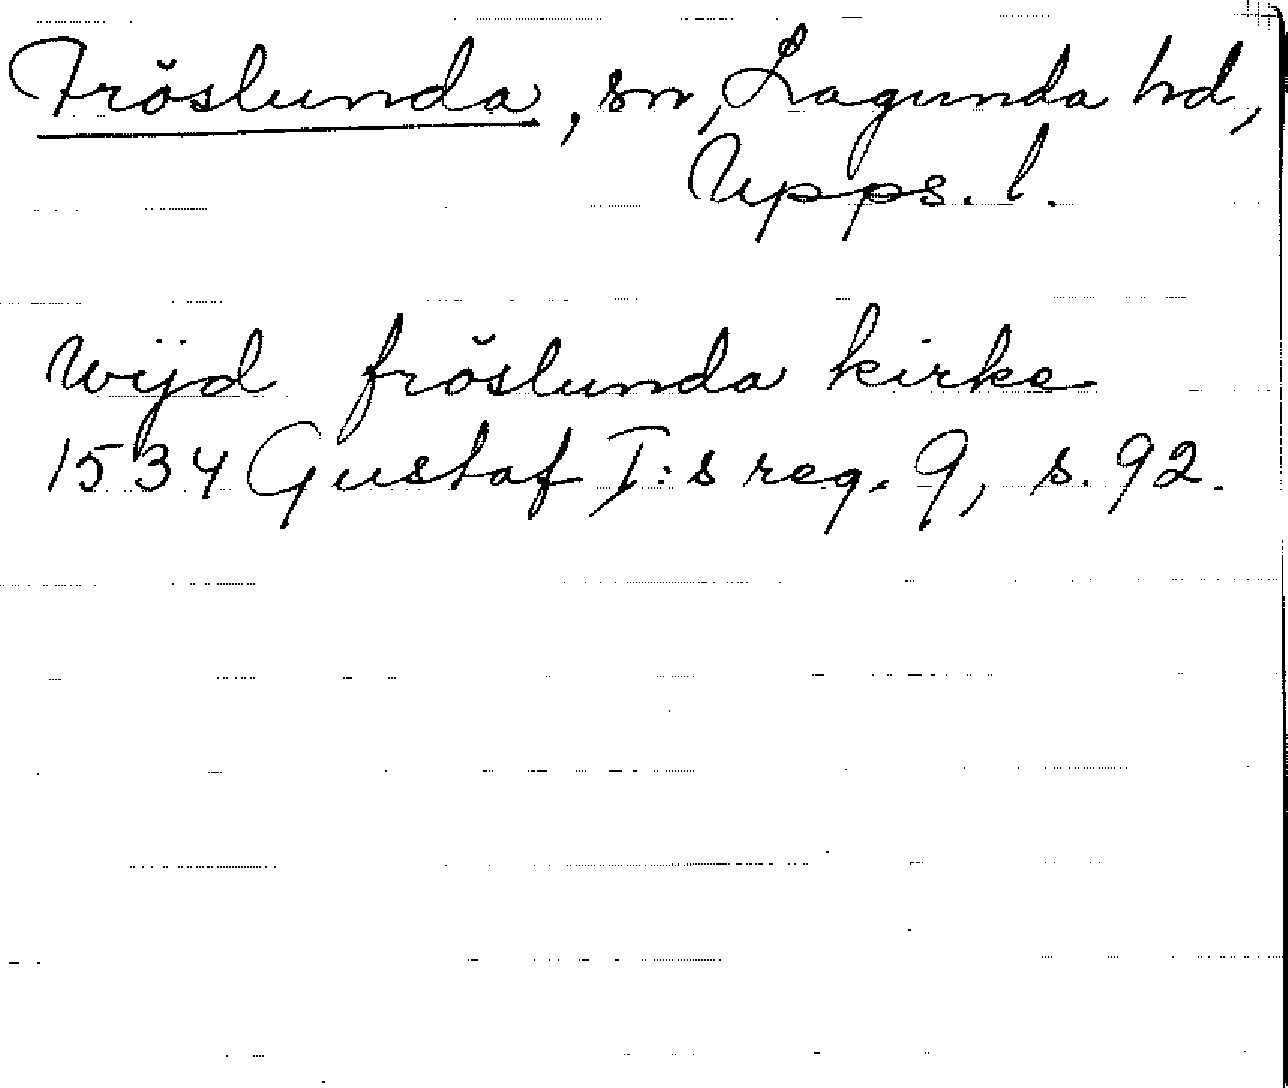 Fröslunda, sn, Lagunda hd,
Upps. l.
Wijd fröslunda kirke
1534 Gustaf I:s reg. 9, s. 92.